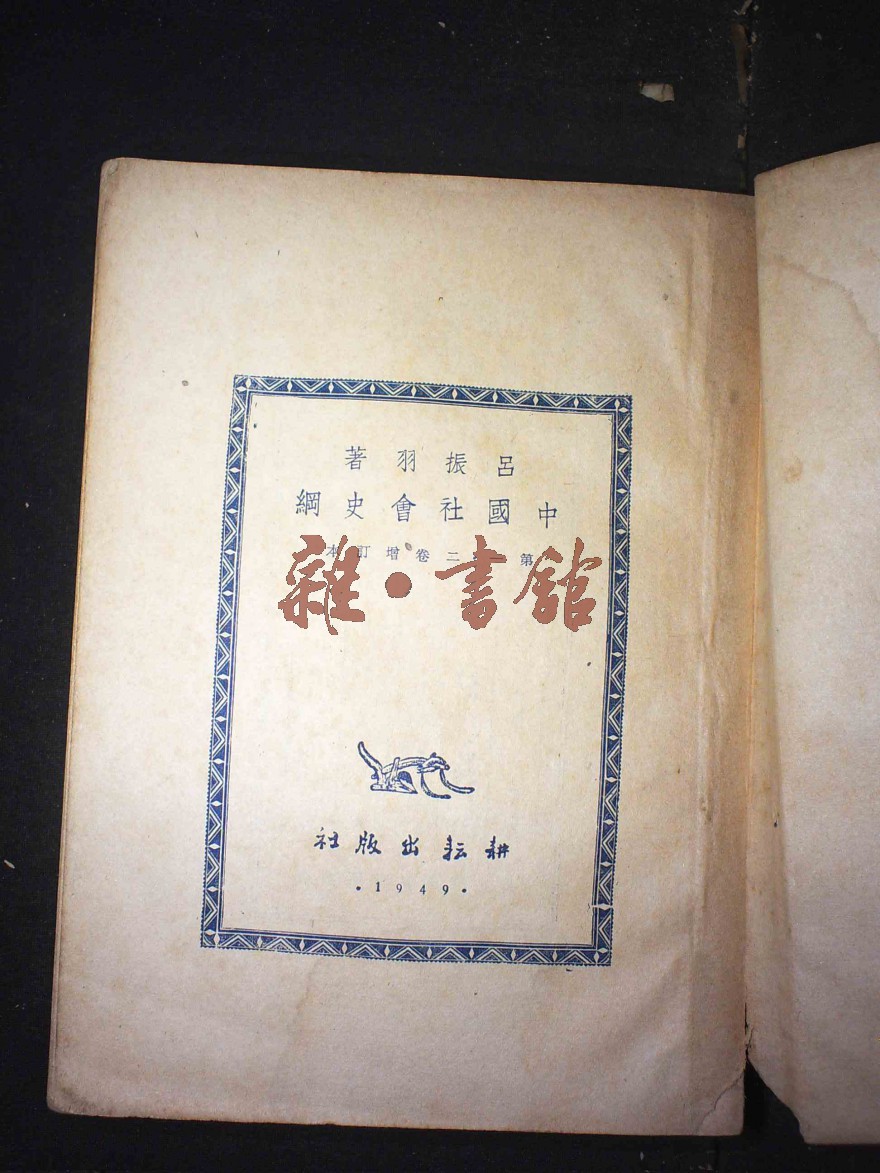 呂振羽著
中國社會史綱
第二卷增訂本
雜·書館
耕耘出版社
·1949·